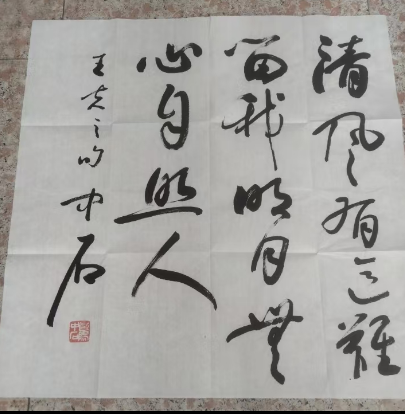 清風有意難
留我明月無
心自照人
王夫之句 中石